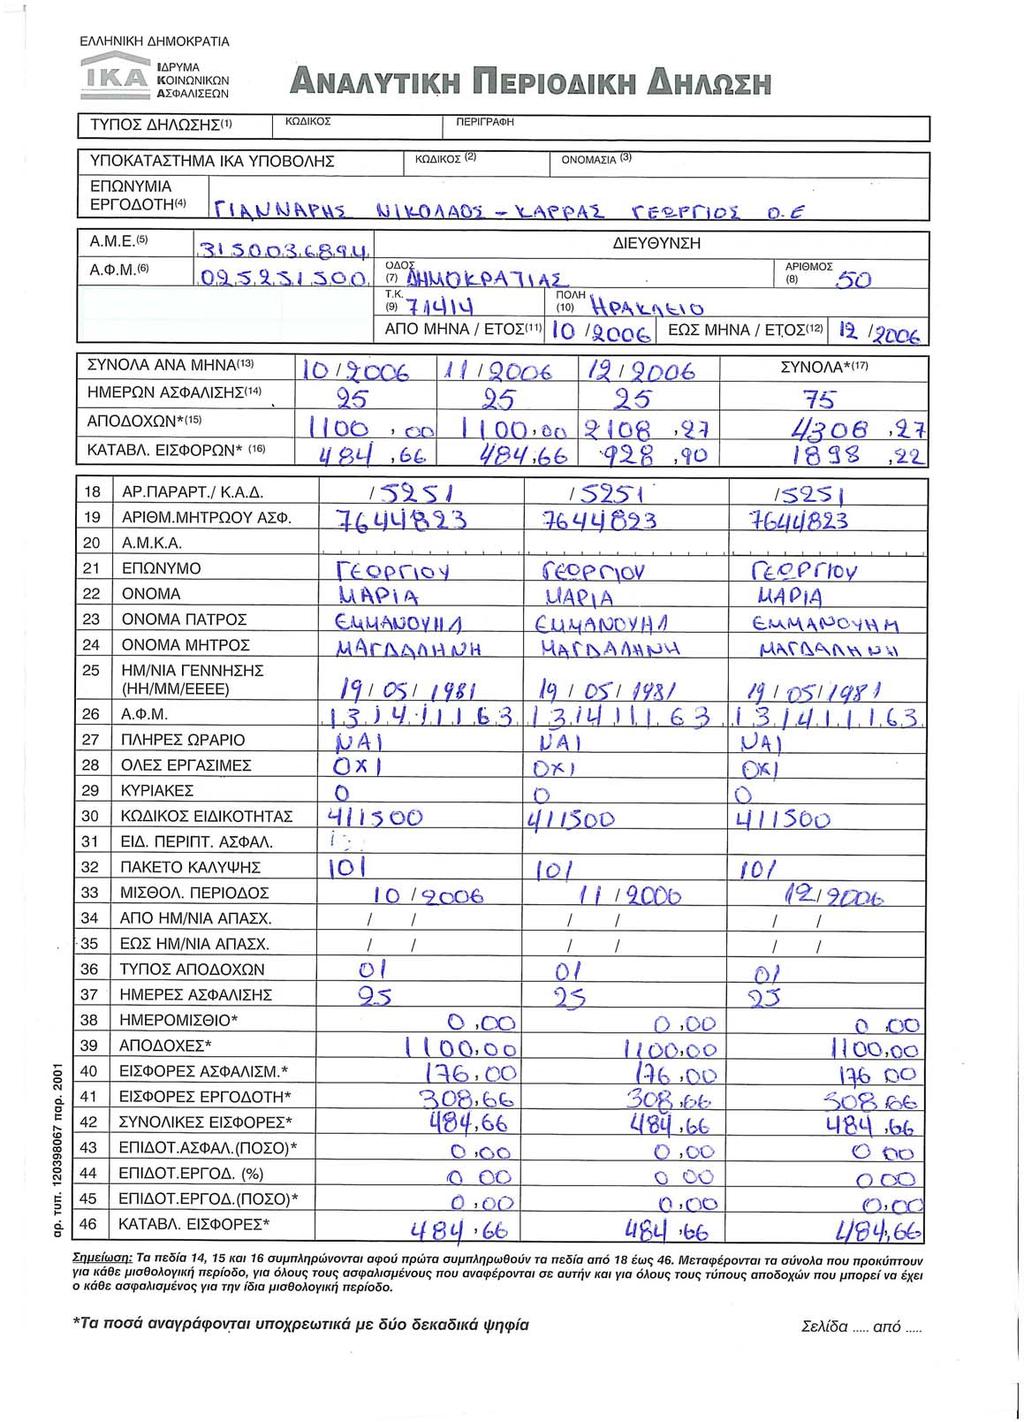 ΕΛΛΗΝΙΚΗ ΔΗΜΟΚΡΑΤΙΑ
ΙΚΑ ΙΔΡΥΜΑ ΚΟΙΝΩΝΙΚΩΝ ΑΣΦΑΛΙΣΕΩΝ
ΑΝΑΛΥΤΙΚΗ ΠΕΡΙΟΔΙΚΗ ΔΗΛΩΣΗ
ΤΥΠΟΣ ΔΗΛΩΣΗΣ(1) ΚΩΔΙΚΟΣ ΠΕΡΙΓΡΑΦΗ
ΥΠΟΚΑΤΑΣΤΗΜΑ ΙΚΑ ΥΠΟΒΟΛΗΣ ΚΩΔΙΚΟΣ (2) ΟΝΟΜΑΣΙΑ (3)
ΕΠΩΝΥΜΙΑ ΕΡΓΟΔΟΤΗ(4) ΓΙΑΝΝΑΡΗΣ ΝΙΚΟΛΑΟΣ – ΚΑΡΡΑΣ ΓΕΩΡΓΙΟΣ Ο.Ε
Α.Μ.Ε.(5) 3150036894 ΔΙΕΥΘΥΝΣΗ
Α.Φ.Μ.(6) 025251500 ΟΔΟΣ (7) ΔΗΜΟΚΡΑΤΙΑΣ ΑΡΙΘΜΟΣ (8) 50
Τ.Κ. (9) 71414 ΠΟΛΗ (10) ΗΡΑΚΛΕΙΟ
ΑΠΟ ΜΗΝΑ / ΕΤΟΣ(11) 10 /2006 ΕΩΣ ΜΗΝΑ / ΕΤΟΣ(12) 12 /2006
ΣΥΝΟΛΑ ΑΝΑ ΜΗΝΑ(13) 10 / 2006 11 / 2006 12 / 2006 ΣΥΝΟΛΑ*(17)
ΗΜΕΡΩΝ ΑΣΦΑΛΙΣΗΣ(14) 25 25 25 75
ΑΠΟΔΟΧΩΝ*(15) 1100 , 00 1100,00 2108 ,27 4308 ,27
ΚΑΤΑΒΛ. ΕΙΣΦΟΡΩΝ* (16) 484 ,66 484,66 928 ,90 1898 ,22
18 ΑΡ.ΠΑΡΑΡΤ./ Κ.Α.Δ. /5251 /5251 /5251
19 ΑΡΙΘΜ.ΜΗΤΡΩΟΥ ΑΣΦ. 7644823 7644823 7644823
20 Α.Μ.Κ.Α.
21 ΕΠΩΝΥΜΟ ΓΕΩΡΓΙΟΥ ΓΕΩΡΓΙΟΥ ΓΕΩΡΓΙΟΥ
22 ΟΝΟΜΑ ΜΑΡΙΑ ΜΑΡΙΑ ΜΑΡΙΑ
23 ΟΝΟΜΑ ΠΑΤΡΟΣ ΕΜΜΑΝΟΥΗΛ ΕΜΜΑΝΟΥΗΛ ΕΜΜΑΝΟΥΗΛ
24 ΟΝΟΜΑ ΜΗΤΡΟΣ ΜΑΓΔΑΛΗΝΗ ΜΑΓΔΑΛΗΝΗ ΜΑΓΔΑΛΗΝΗ
25 ΗΜ/ΝΙΑ ΓΕΝΝΗΣΗΣ (ΗΗ/ΜΜ/ΕΕΕΕ) 19 / 05 / 1981 19 / 05 / 1981 19 / 05 / 1981
26 Α.Φ.Μ. 131411163 131411163 131411163
27 ΠΛΗΡΕΣ ΩΡΑΡΙΟ ΝΑΙ ΝΑΙ ΝΑΙ
28 ΟΛΕΣ ΕΡΓΑΣΙΜΕΣ ΟΧΙ ΟΧΙ ΟΧΙ
29 ΚΥΡΙΑΚΕΣ 0 0 0
30 ΚΩΔΙΚΟΣ ΕΙΔΙΚΟΤΗΤΑΣ 411500 411500 411500
31 ΕΙΔ. ΠΕΡΙΠΤ. ΑΣΦΑΛ.
32 ΠΑΚΕΤΟ ΚΑΛΥΨΗΣ 101 101 101
33 ΜΙΣΘΟΛ. ΠΕΡΙΟΔΟΣ 10 / 2006 11 / 2006 12 / 2006
34 ΑΠΟ ΗΜ/ΝΙΑ ΑΠΑΣΧ. / / / / / /
35 ΕΩΣ ΗΜ/ΝΙΑ ΑΠΑΣΧ. / / / / / /
36 ΤΥΠΟΣ ΑΠΟΔΟΧΩΝ 01 01 01
37 ΗΜΕΡΕΣ ΑΣΦΑΛΙΣΗΣ 25 25 25
38 ΗΜΕΡΟΜΙΣΘΙΟ* 0 ,00 0 ,00 0 ,00
39 ΑΠΟΔΟΧΕΣ* 1100,00 1100,00 1100,00
40 ΕΙΣΦΟΡΕΣ ΑΣΦΑΛΙΣΜ.* 176,00 176 ,00 176 00
41 ΕΙΣΦΟΡΕΣ ΕΡΓΟΔΟΤΗ* 308,66 308,66 308 66
42 ΣΥΝΟΛΙΚΕΣ ΕΙΣΦΟΡΕΣ* 484,66 484 ,66 484 ,66
43 ΕΠΙΔΟΤ.ΑΣΦΑΛ.(ΠΟΣΟ)* 0 ,00 0 ,00 0 00
44 ΕΠΙΔΟΤ.ΕΡΓΟΔ. (%) 0 00 0 00 0 00
45 ΕΠΙΔΟΤ.ΕΡΓΟΔ.(ΠΟΣΟ)* 0 ,00 0 ,00 0,00
46 ΚΑΤΑΒΛ. ΕΙΣΦΟΡΕΣ* 484 ,66 484 ,66 484,66
Σημείωση: Τα πεδία 14, 15 και 16 συμπληρώνονται αφού πρώτα συμπληρωθούν τα πεδία από 18 έως 46. Μεταφέρονται τα σύνολα που προκύπτουν
για κάθε μισθολογική περίοδο, για όλους τους ασφαλισμένους που αναφέρονται σε αυτήν και για όλους τους τύπους αποδοχών που μπορεί να έχει
ο κάθε ασφαλισμένος για την ίδια μισθολογική περίοδο.
*Τα ποσά αναγράφονται υποχρεωτικά με δύο δεκαδικά ψηφία
Σελίδα ..... από .....
αρ. τυπ. 120398067 παρ. 2001